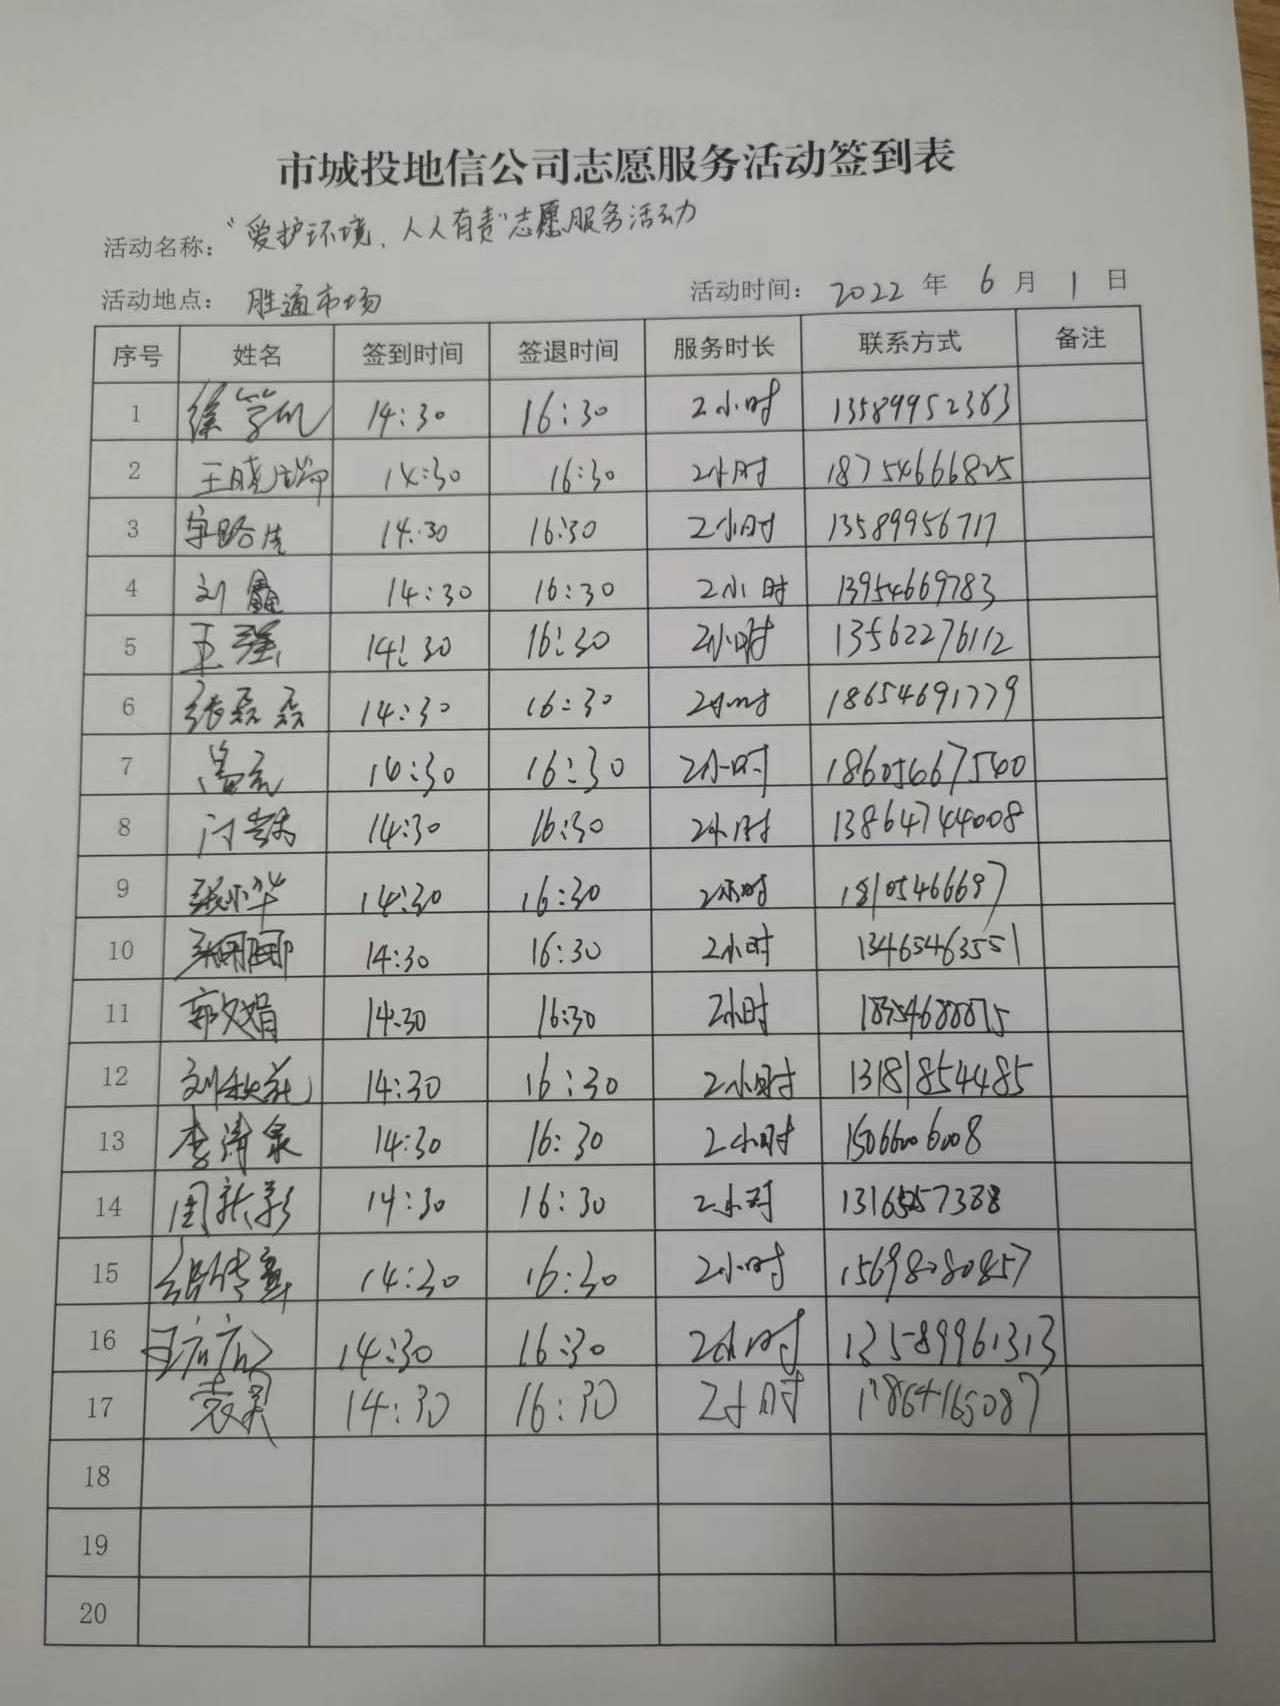 市城投地信公司志愿服务活动签到表
活动名称：“爱护环境、人人有责”志愿服务活动
活动地点：胜通市场 活动时间：2022年6月1日
序号 姓名 签到时间 签退时间 服务时长 联系方式 备注
1 14:30 16:30 2小时 13589952383
2 14:30 16:30 2小时 18754666825
3 14:30 16:30 2小时 13589956717
4 刘鑫 14:30 16:30 2小时 13954669783
5 王强 14:30 16:30 2小时 13562276112
6 张磊磊 14:30 16:30 2小时 18654691779
7 14:30 16:30 2小时 18605467540
8 14:30 16:30 2小时 13864744008
9 张小华 14:30 16:30 2小时 18105466697
10 14:30 16:30 2小时 13465463551
11 郭文娟 14:30 16:30 2小时
12 14:30 16:30 2小时 13181854485
13 李清泉 14:30 16:30 2小时 15066006008
14 周新彩 14:30 16:30 2小时
15 14:30 16:30 2小时 15698080857
16 14:30 16:30 2小时 13589961313
17 袁英 14:30 16:30 2小时
18
19
20